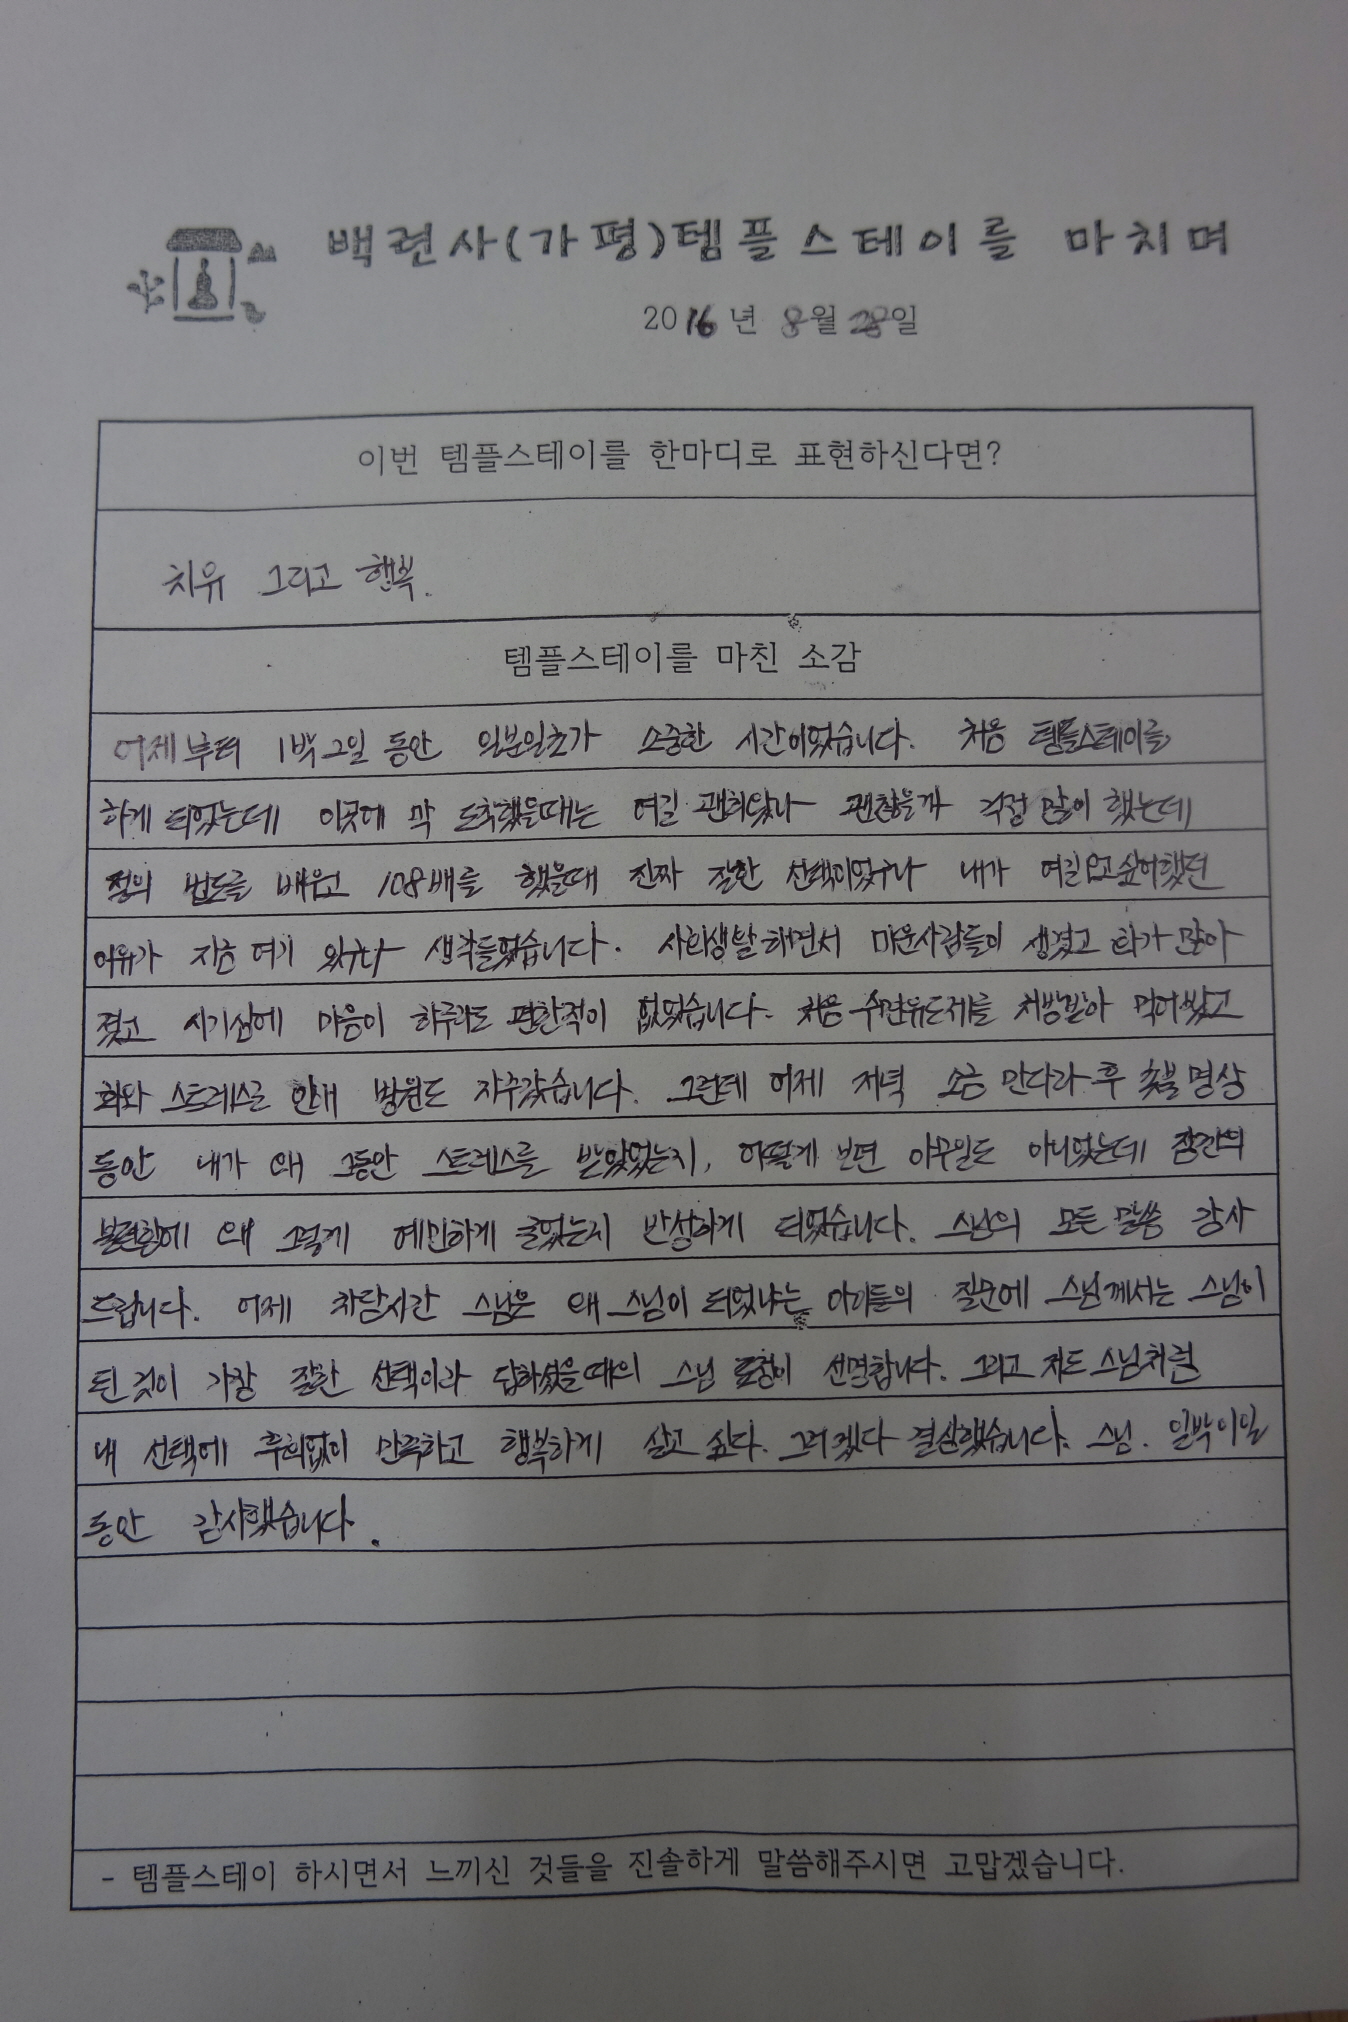 백련사(가평)템플스테이를 마치며
2016년 8월 28일
이번 템플스테이를 한마디로 표현하신다면?
치유 그리고 행복.
템플스테이를 마친 소감
어제부터 1박2일 동안 일분일초가 소중한 시간이었습니다. 처음 템플스테이를
하게 되었는데 이곳에 막 도착했을때는 여길 괜히왔나 괜찮을까 걱정 많이 했는데
절의 법도를 배우고 108배를 했을때 진짜 잘한 선택이었구나 내가 여길오고싶어했던
이유가 지금 여기 있구나 생각들었습니다. 사회생활하면서 미운사람들이 생겼고 화가 많아
졌고 시기심에 마음이 하루라도 편한적이 없었습니다. 처음 수면유도제를 처방받아 먹어봤고
화와 스트레스로 인해 병원도 자주갔습니다. 그런데 어제 저녁 소금 만다라 후 촛불 명상
동안 내가 왜 그동안 스트레스를 받았었는지, 어떻게 보면 아무일도 아니었는데 잠깐의
불편함에 왜 그렇게 예민하게 굴었는지 반성하게 되었습니다. 스님의 모든 말씀 감사
드립니다. 어제 차담시간 스님은 왜 스님이 되었냐는 아이들의 질문에 스님께서는 스님이
된 것이 가장 잘한 선택이라 답하셨을때의 스님 표정이 선명합니다. 그리고 저도 스님처럼
내 선택에 후회없이 만족하고 행복하게 살고 싶다. 그러겠다 결심했습니다. 스님. 일박이일
동안 감사했습니다.
- 템플스테이 하시면서 느끼신 것들을 진솔하게 말씀해주시면 고맙겠습니다.